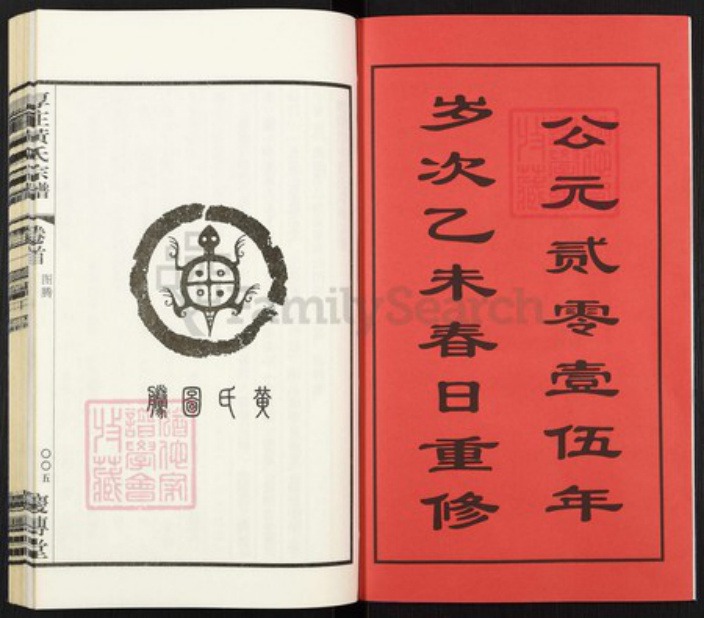 公元贰零壹伍年
岁次乙未春日重修
黄氏圖騰
厚庄黄氏宗譜
卷首
图腾
〇〇五
FamilySearch